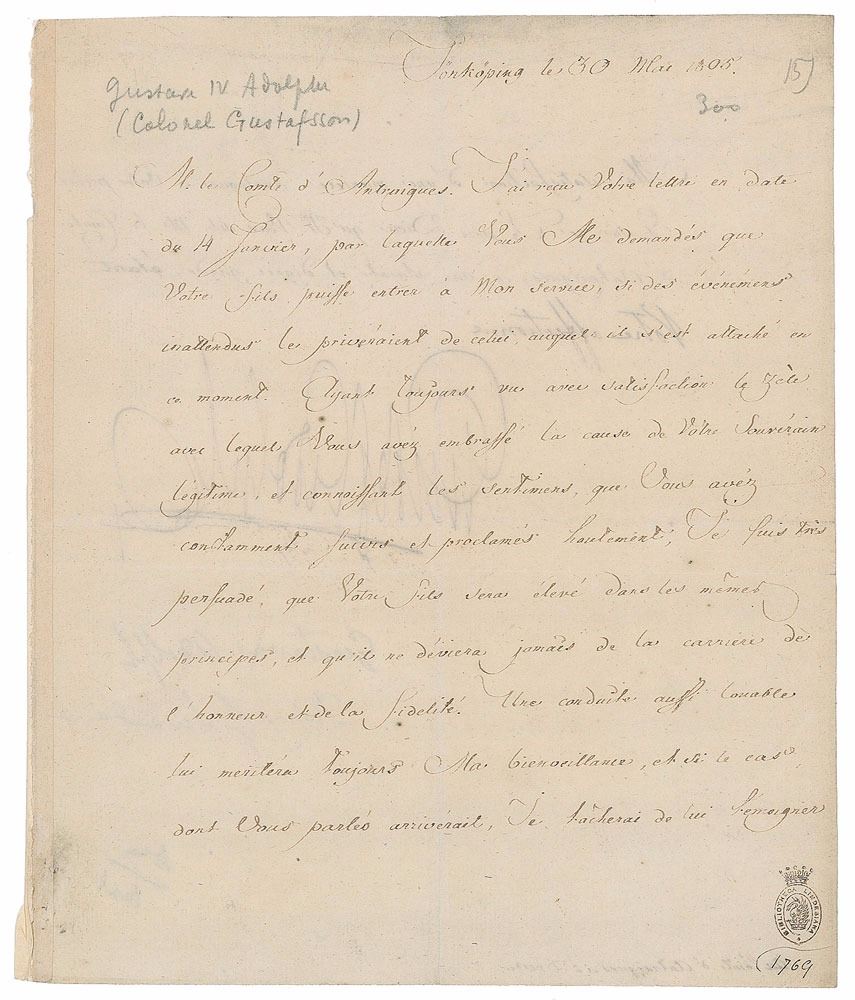 Jönköping le 30 Mai 1805.
15)
300
Gustave IV Adolphe
(Colonel Gustafsson)
M. le Comte d'Antraigues. J'ai reçu Votre lettre en date
du 14 Janvier, par laquelle Vous Me demandés que
Votre fils puisse entrer à Mon service, si des événémens
inattendus le privéraient de celui, auquel il s'est attaché en
ce moment. Ayant toujours vu avec satisfaction le zèle
avec lequel Vous avéz embrassé la cause de Vôtre Souvérain
légitime, et connoissant les sentimens, que Vous avéz
constamment suivis et proclamés hautement, Je suis très
persuadé, que Votre fils sera élevé dans les mêmes
principes, et qu'il ne déviera jamais de la carriere de
l'honneur et de la fidelité. Une conduite aussi louable
lui meritéra toujours Ma bienveillance, et si le cas
dont Vous parlés arrivérait, Je tâcherai de lui témoigner
BIBLIOTHECA LINDESIANA
1769